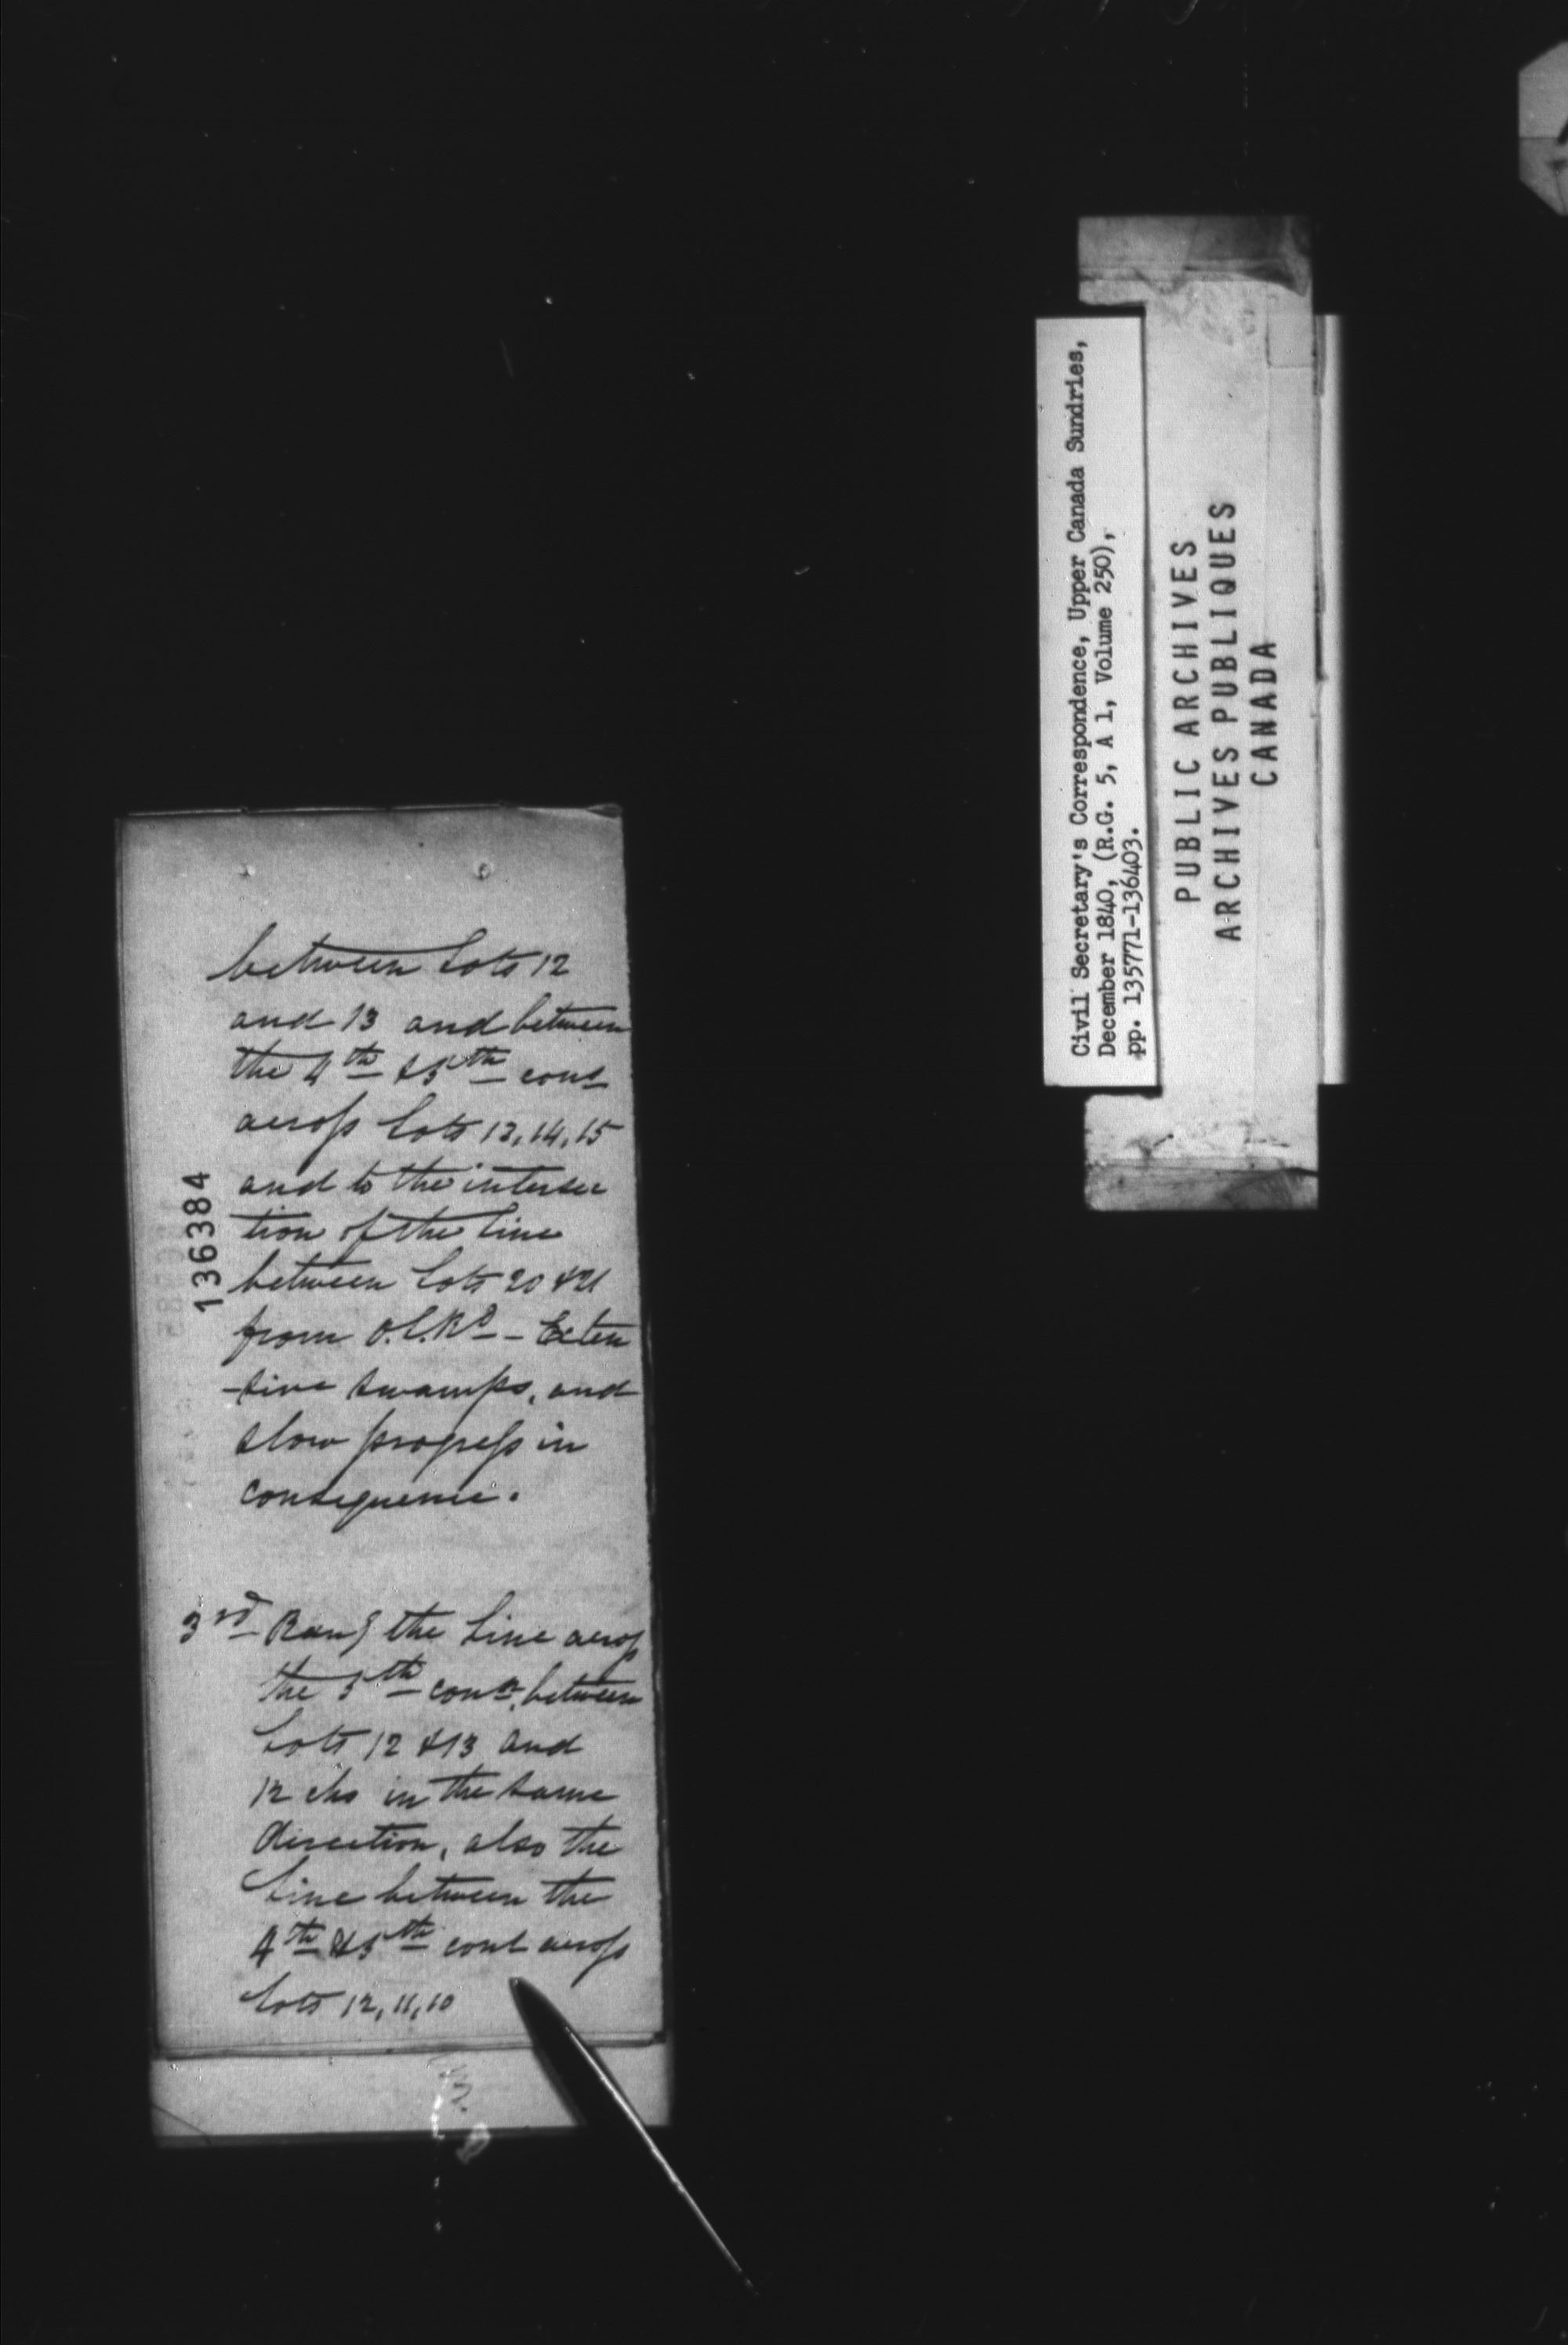 between Lots 12
and 13 and between
the 4th & 5th cons
across Lots 13, 14, 15
and to the intersec
tion of the line
between Lots 20 & 21
from O.S. Rd - Exten
-sive swamps, and
slow progress in
consequence.
3rd Ran the Line across
the 5th con. between
Lots 12 & 13 and
12 chs in the same
direction, also the
Line between the
4th & 5th cons across
Lots 12, 11, 10
136384
Civil Secretary's Correspondence, Upper Canada Sundries,
December 1840, (R.G. 5, A 1, Volume 250),
pp. 135771-136403.
PUBLIC ARCHIVES
ARCHIVES PUBLIQUES
CANADA